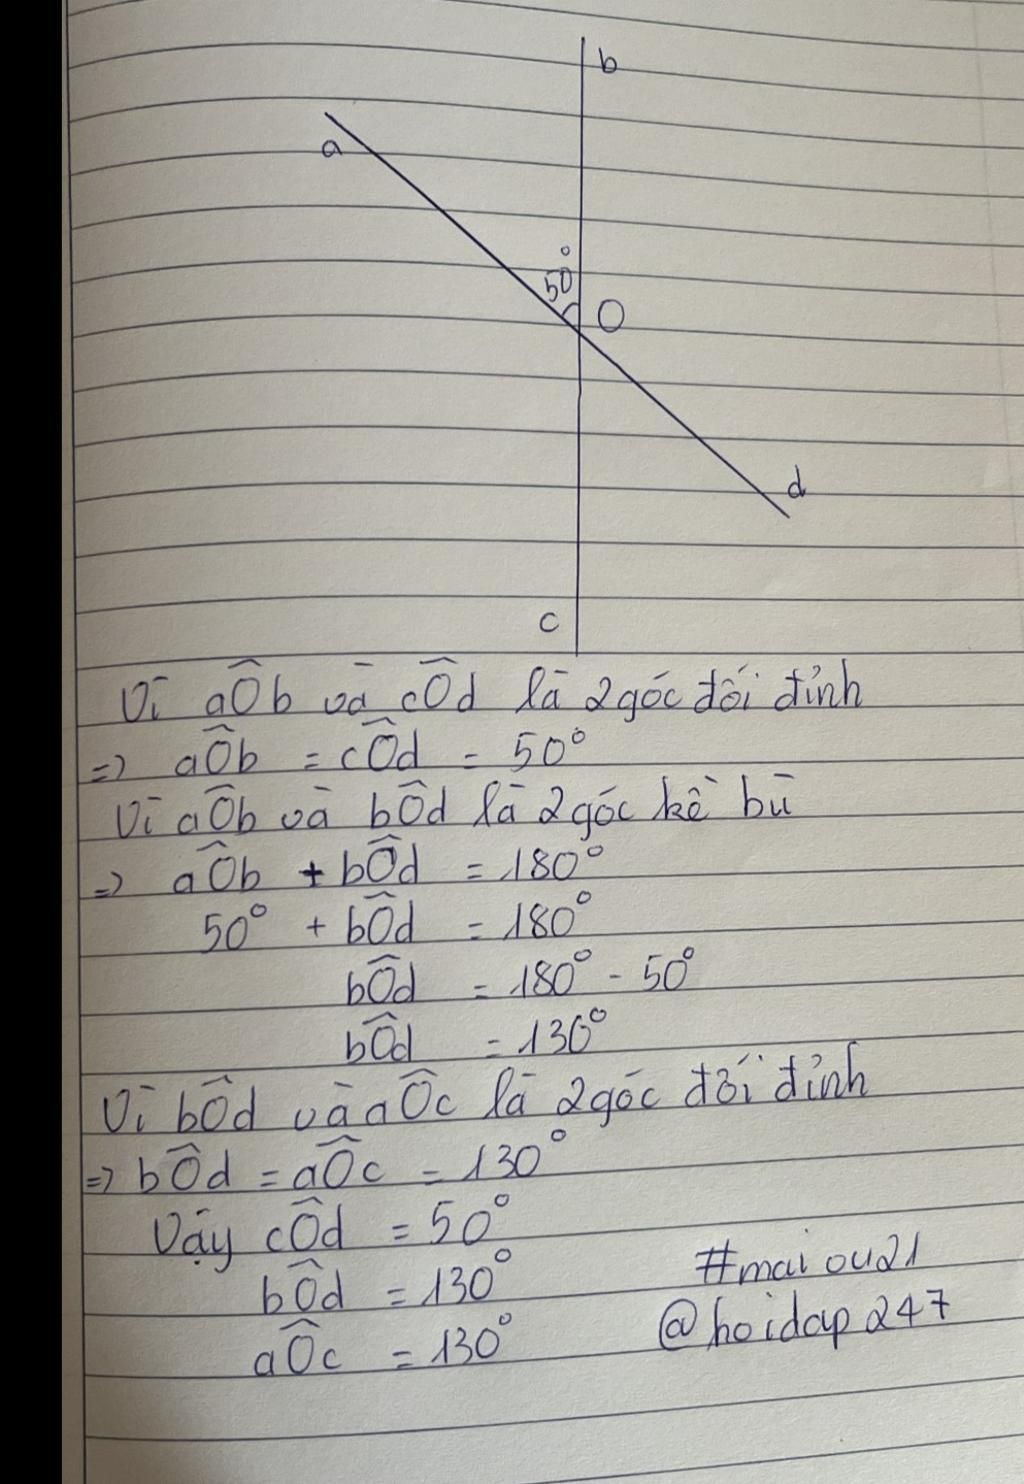 b
a
50°
O
d
c
Vì aÔb và cÔd là 2 góc đối đỉnh
=> aÔb = cÔd = 50°
Vì aÔb và bÔd là 2 góc kề bù
=> aÔb + bÔd = 180°
50° + bÔd = 180°
bÔd = 180° - 50°
bÔd = 130°
Vì bÔd và aÔc là 2 góc đối đỉnh
=> bÔd = aÔc = 130°
Vậy cÔd = 50°
bÔd = 130°
aÔc = 130°
#maiou21
@hoidap247